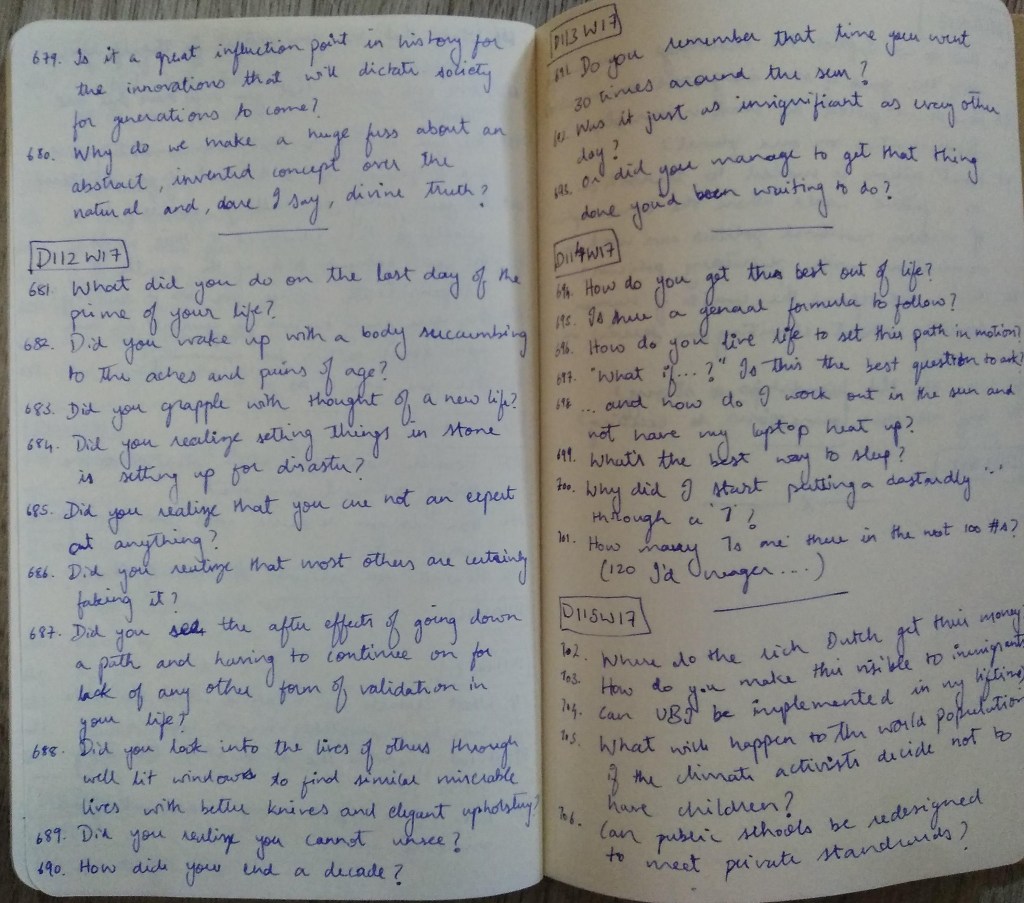 679. Is it a great influction point in history for
the innovations that will dictate society
for generations to come?
680. Why do we make a huge fuss about an
abstract, invented concept over the
natural and, dare I say, divine truth?
D112 W17
681. What did you do on the last day of the
prime of your life?
682. Did you wake up with a body succumbing
to the aches and pains of age?
683. Did you grapple with thought of a new life?
684. Did you realize setting things in stone
is setting up for disaster?
685. Did you realize that you are not an expert
at anything?
686. Did you realize that most others are certainly
faking it?
687. Did you see the after effects of going down
a path and having to continue on for
lack of any other form of validation in
your life?
688. Did you look into the lives of others through
well lit windows to find similar miserable
lives with better knives and elegant upholstery?
689. Did you realize you cannot unsee?
690. How did your end a decade?
D113 W17
691. Do you remember that time you went
30 times around the sun?
692. Was it just as insignificant as every other
day?
693. Or did you manage to get that thing
done you'd been waiting to do?
D114W17
694. How do you get the best out of life?
695. Is there a general formula to follow?
696. How do you live life to set this path in motion?
697. "What if...?" Is this the best question to ask?
698. ... and how do I work out in the sun and
not have my laptop heat up?
699. What's the best way to sleep?
700. Why did I start putting a dastardly '-'
through a '7'?
701. How many 7s are there in the next 100 #s?
(120 I'd wager...)
D115W17
702. Where do the rich Dutch get their money
703. How do you make this visible to immigrants
704. Can UBI be implemented in my lifetime
705. What will happen to the world population
if the climate activists decide not to
have children?
706. Can public schools be redesigned
to meet private standards?